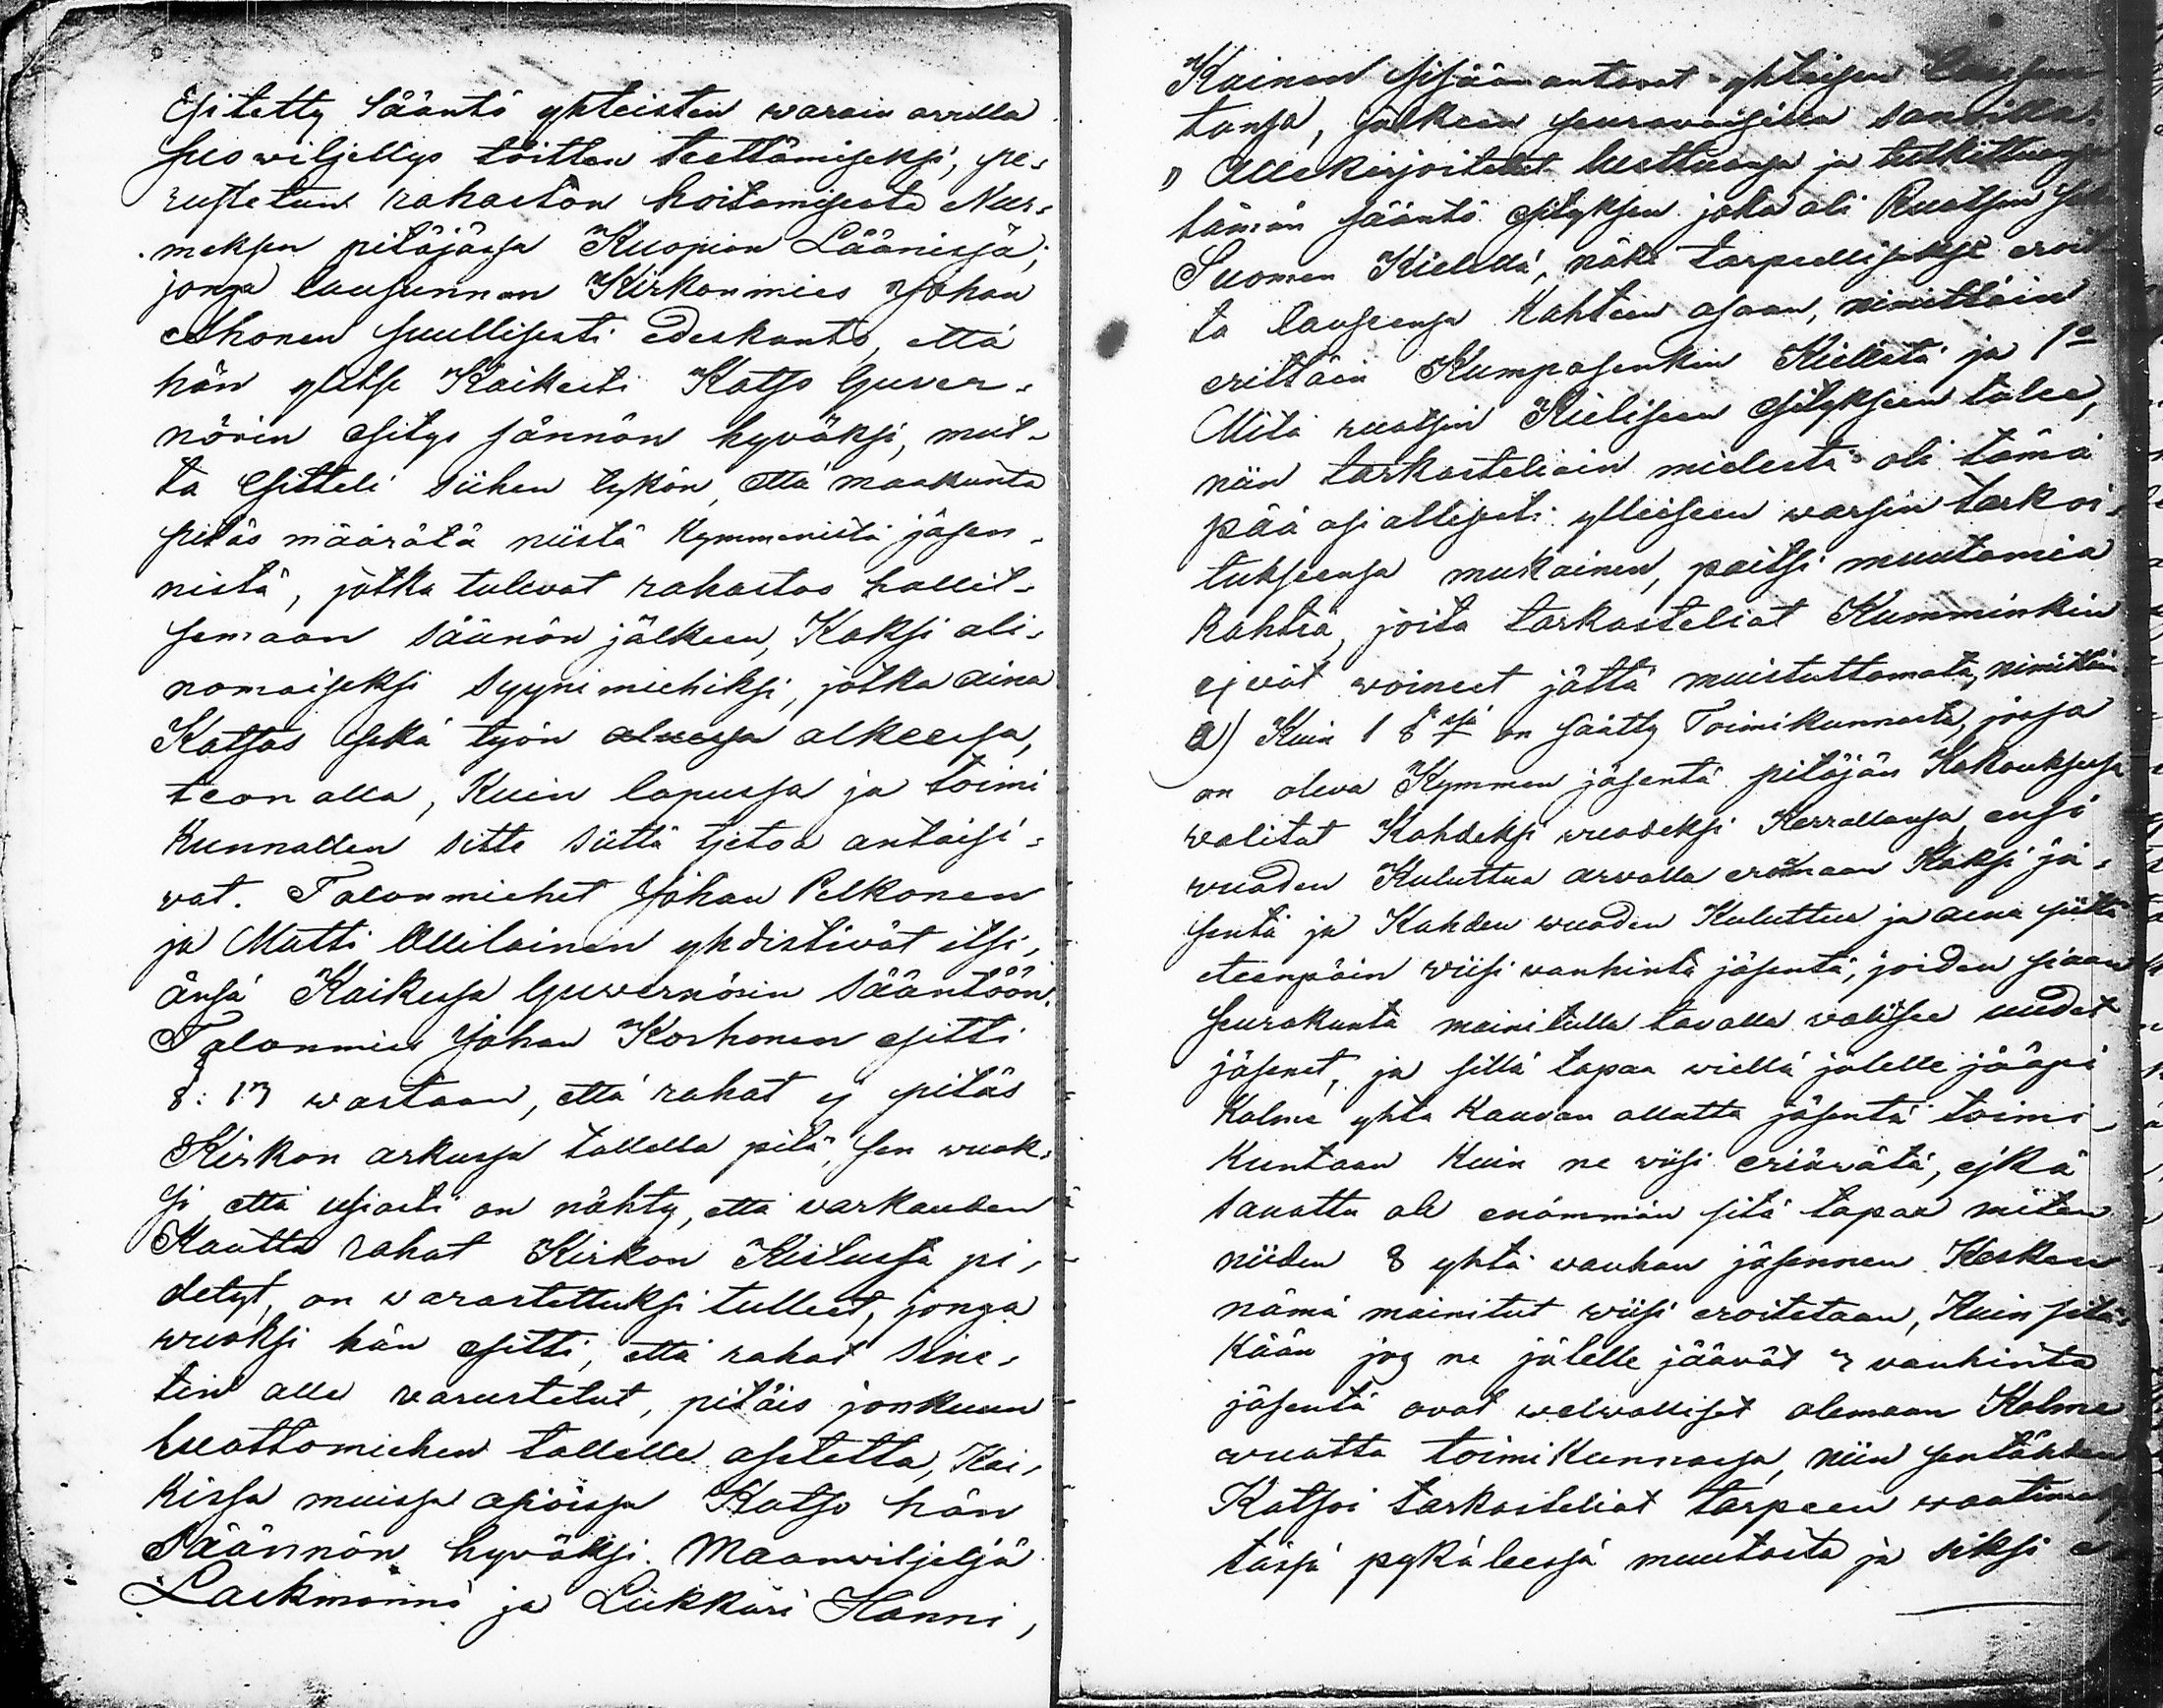 Esitetty Sääntö yhteisten warain avulla
suo wiljellys töitten teettämiseksi, pe-
rustetun rahaston hoitamisesta Nur-
meksen pitäjäsä Kuopion Läänissä;
jonga lausunnon Kirkonmies Johan
Ahonen suullisesti edeskanto, että
hän ylitse Kaikesti Katso Guver-
nörin esitys sännön hyväksi, mut-
ta Esitteli siihen tykön, että maakunta
pitäs määrätä niistä Kymmenistä jäsen-
nistä, jotka tulevat rahastoa hallit-
semaan säänön jälkeen, Kaksi ali-
nomaiseksi syynimiehiksi, jotka aina
Katsos sekä työn alkeesa,
teon alla, Kuin lopussa ja toimi
Kunnallen sitte siittä tjetoa antaisi-
vat. Talonmiehet Johan Pelkonen
ja Matti Ollilainen yhdistivät itsi-
änsä Kaikessa Guvernörin Sääntöön.
Talonmies Johan Korhonen esitti
§: 17 wastaan, että rahat ej pitäs
Kirkon arkussa tallella pitä, sen wuok-
si, että usiasti on nähty, että varkauden
Kautta rahat Kirkon Kistussa pi-
detyt, on warastettuksi tulleet, jonga
wuoksi hän esitti, että rahat sine-
tin alla varustetut, pitäis jonkuun
luottomiehen tallelle asetetta, Kai-
kissa muissa asioissa Katso hän
Säännön hyväksi. Maanwiljeljä
Lackmanni ja Lukkari Hanni,
Kainen sisään antavat yhteisen lausun
tonsa, jälkeen seuravaisilla sanoilla:
" Allekirjoitetut luettuansa ja tutkittuansa
tämän sääntö esityksen joka oli Ruotsin sekä
Suomen Kielellä, näke tarpeelliseksi eroit
ta lauseensa Kahteen osaan, nimittäin
erittäin Kumpasenkin Kielestä ja 1o
Mitä ruotsin Kieliseen esitykseen tulee,
niin tarkasteliain mielestä oli tämä
pää asiallisesti ylleiseen warsin tarkoi-
tukseensa mukainen, paitsi muutamia
kahtia, joita tarkasteliat Kumminkin
ejvät woineet jättä muistuttamata, nimittäin
a) Kuin 1 §sä on säätty Toimikunnasta, josa
on oleva Kymmen jäsentä pitäjän Kokouksesa
walitut Kahdeksi wuodeksi Kerrallansa, ensi
wuoden Kuluttua arvalla erömaan Kaksi jä-
sentä ja Kahden wuoden Kuluttua ja aina siitä
eteenpäin wiisi vanhinta jäsentä, joiden siaan
seurakunta mainitulla tavalla valitsee uudet
jäsenet, ja sillä tapaa wiellä jälelle jääpi
Kolme yhtä Kauvan ollutta jäsentä toimi-
Kuntaan Kuin ne wiisi eriäwätä, ejkä
sanottu ole enämmän sitä tapaa miten
niiden 8 yhtä vanhan jäsennen Kesken
nämä mainitut wiisi eroitetaan, Kuin sitä-
kään jos ne jälelle jäävät 3 vanhinta
jäsentä ovat welvolliset olemaan Kolme
wuotta toimikunnassa, niin sentähden
Katsoi tarkasteliat tarpeen waatima
tässä pykäleessä muutosta ja siksi